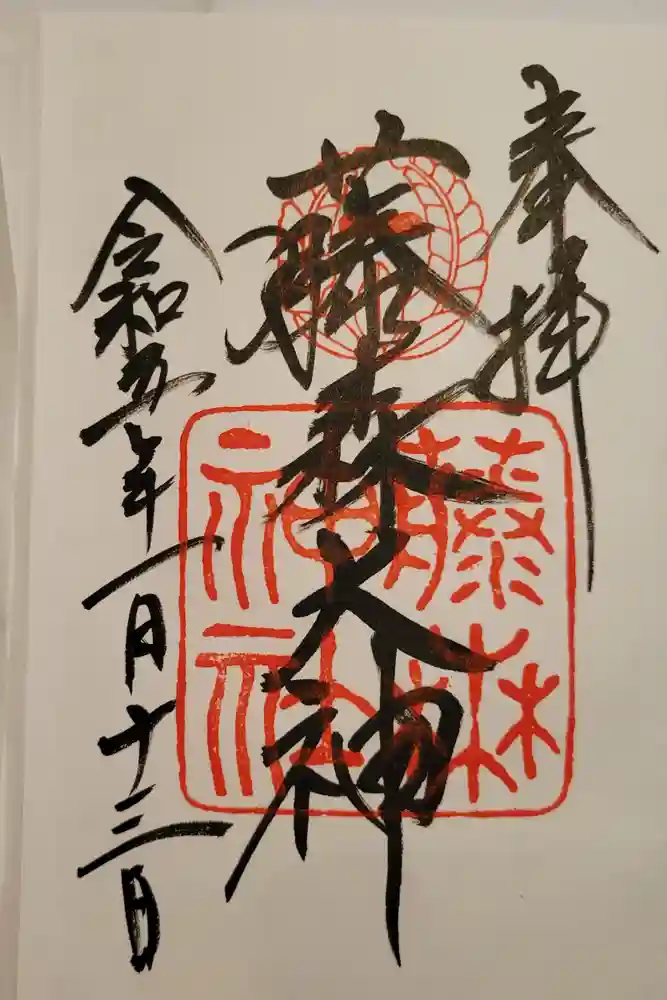 奉拝
藤森大神
令和五年一月十三日
藤森
神社